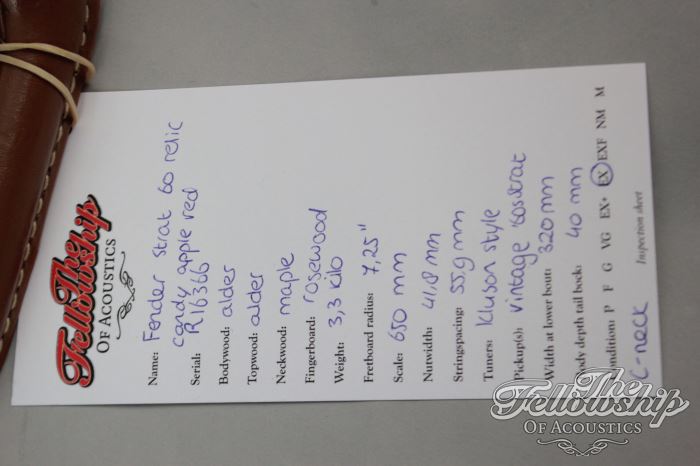 The
Fellowship
OF ACOUSTICS
Name: Fender strat 60 relic
candy apple red
Serial: R16366
Bodywood: alder
Topwood: alder
Neckwood: maple
Fingerboard: rosewood
Weight: 3,3 kilo
Fretboard radius: 7,25"
Scale: 650 mm
Nutwidth: 41,8 mm
Stringspacing: 55,9 mm
Tuners: Kluson style
Pickup(s): vintage '60s strat
Width at lower bout: 320 mm
Body depth tail bock: 40 mm
Condition: P F G VG EX+ EX EXF NM M
C-neck
Inspection sheet
The
Fellowship
OF ACOUSTICS